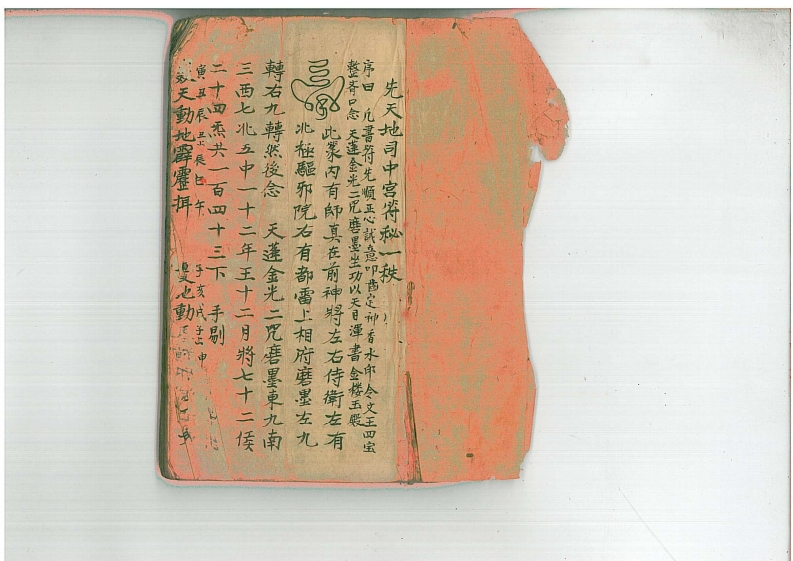 先天地司中宫符秘一秩
序曰 凡書符先順正心誠意叩齒定神香水印令文王四宝
整斉口念 天蓬金光二咒磨墨坐功以天目渾書金楼玉殿
此業内有師真在前神將左右侍衛左有
北極驅邪院右有都雷上相府磨墨左九
轉右九轉然後念 天蓬金光二咒磨墨東九南
三西七北五中一十二年王十二月將七十二候
二十四炁共一百四十三下 手剔
寅丑辰丑辰巳午 子亥戌
天動地霹靂揖 地動